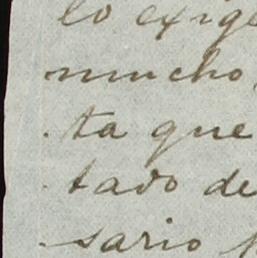 lo exige
mucho
ta que
tado de
sario